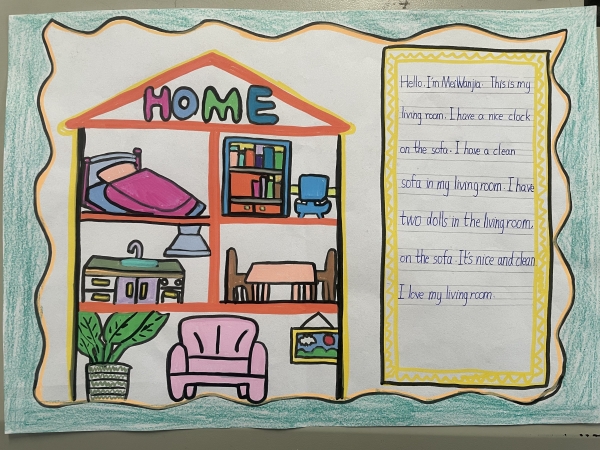 HOME
Hello. I'm MeiWanjia. This is my
living room. I have a nice clock
on the sofa. I have a clean
sofa in my living room. I have
two dolls in the living room,
on the sofa. It's nice and clean
I love my living room.